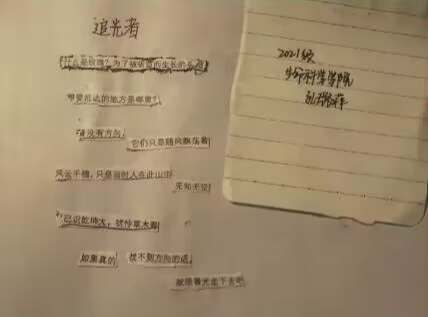 追光者
什么是玫瑰?为了被砍首而生长的头
想要抵达的地方是哪里?
没有方向,
它们只是随风飘荡着
风云千樯,只是当时人在此山中
无知无觉
已识乾坤大,犹怜草木青
如果真的
找不到方向的话,
就随着光走下去吧
2021级
生命科学学院